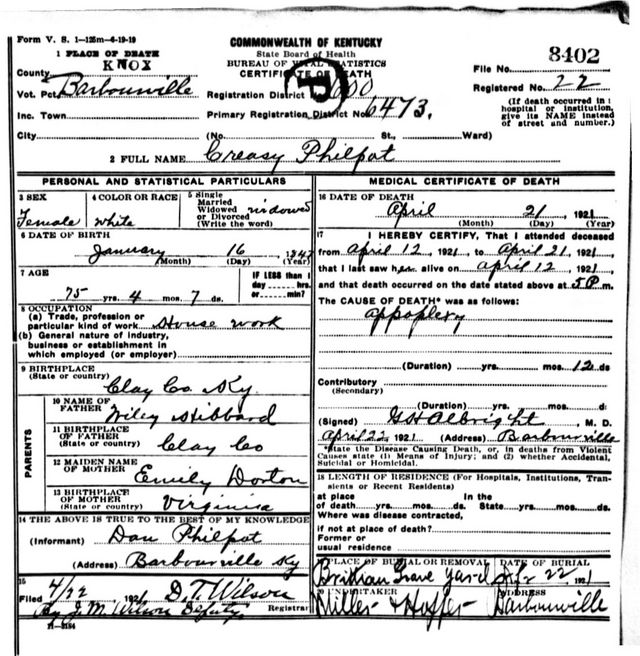 Form V. S. 1—125m—6-19-19
COMMONWEALTH OF KENTUCKY
State Board of Health
BUREAU OF VITAL STATISTICS
CERTIFICATE OF DEATH
1 PLACE OF DEATH
County KNOX
File No. 8402
Vot. Pct. Barbourville
Registration District No. 600
Registered No. 22
Inc. Town
Primary Registration District No. 6473.
(If death occurred in a hospital or institution, give its NAME instead of street and number.)
City (No. St., Ward)
2 FULL NAME Creasy Philpot
PERSONAL AND STATISTICAL PARTICULARS
3 SEX
Female
4 COLOR OR RACE
White
5 Single
Married
Widowed
or Divorced
(Write the word)
widowed
6 DATE OF BIRTH
January 16
(Month) (Day) (Year)
7 AGE
75 yrs. 4 mos. 7 ds.
IF LESS than 1
day hrs.
or min?
8 OCCUPATION
(a) Trade, profession or
particular kind of work House work
(b) General nature of industry,
business or establishment in
which employed (or employer)
9 BIRTHPLACE
(State or country)
Clay Co. Ky.
PARENTS
10 NAME OF
FATHER
Wiley Hibbard
11 BIRTHPLACE
OF FATHER
(State or country)
Clay Co
12 MAIDEN NAME
OF MOTHER
Emily Dorton
13 BIRTHPLACE
OF MOTHER
(State or country)
Virginia
14 THE ABOVE IS TRUE TO THE BEST OF MY KNOWLEDGE
(Informant) Dan Philpot
(Address) Barbourville Ky
15
Filed 4/22, 1921 D. T. Wilson
Registrar
By J. M. Wilson Deputy
11—3184
MEDICAL CERTIFICATE OF DEATH
16 DATE OF DEATH
April 21, 1921
(Month) (Day) (Year)
17 I HEREBY CERTIFY, That I attended deceased
from April 12, 1921, to April 21, 1921
that I last saw her alive on April 12, 1921,
and that death occurred on the date stated above at 5 P. m.
The CAUSE OF DEATH* was as follows:
appoplexy
(Duration) yrs. mos. 12 ds
Contributory
(Secondary)
(Duration) yrs. mos. d:
(Signed) G H Albright, M. D.
April 22, 1921 (Address) Barbourville
*State the Disease Causing Death, or, in deaths from Violent
Causes state (1) Means of Injury; and (2) whether Accidental,
Suicidal or Homicidal.
18 LENGTH OF RESIDENCE (For Hospitals, Institutions, Transients or Recent Residents)
at place In the
of death yrs. mos. ds. State yrs. mos. ds.
Where was disease contracted,
if not at place of death?
Former or
usual residence
19 PLACE OF BURIAL OR REMOVAL
Brittian Grave Yard
DATE OF BURIAL
22, 1921
20 UNDERTAKER
Miller & Hopper
ADDRESS
Barbourville